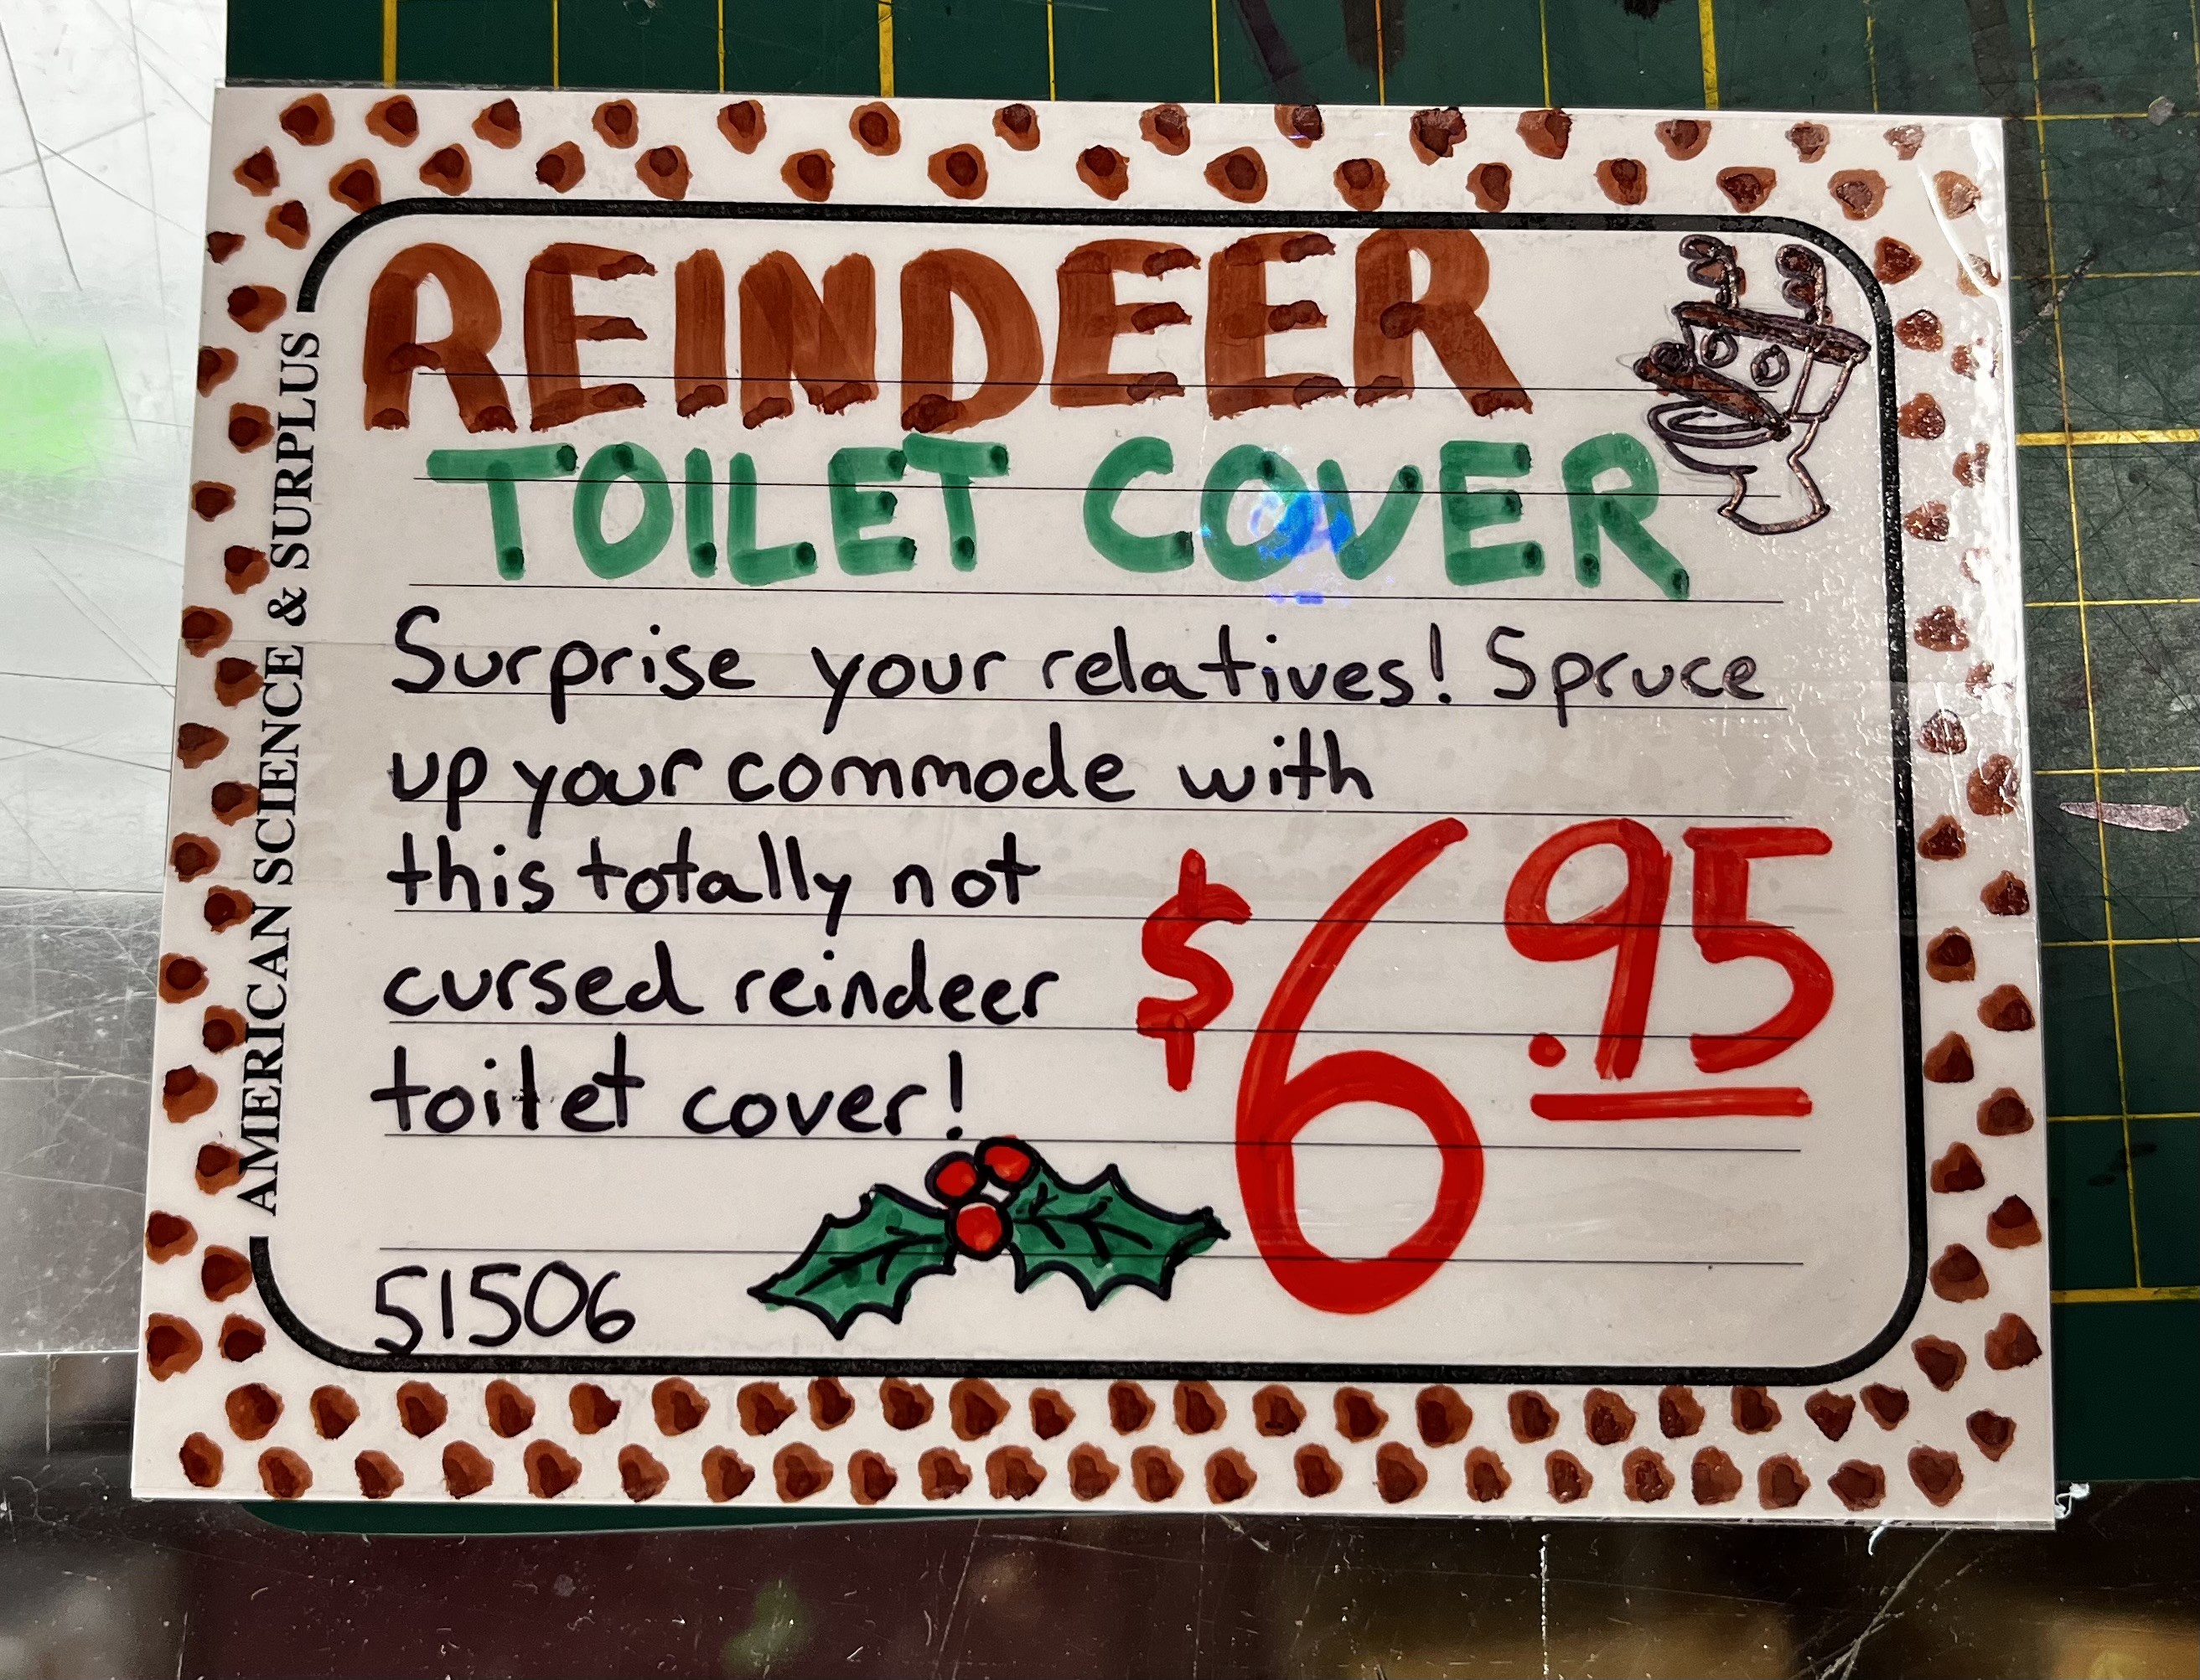 REINDEER
TOILET COVER
Surprise your relatives! Spruce
up your commode with
this totally not
cursed reindeer
toilet cover!
$6.95
51506
AMERICAN SCIENCE & SURPLUS